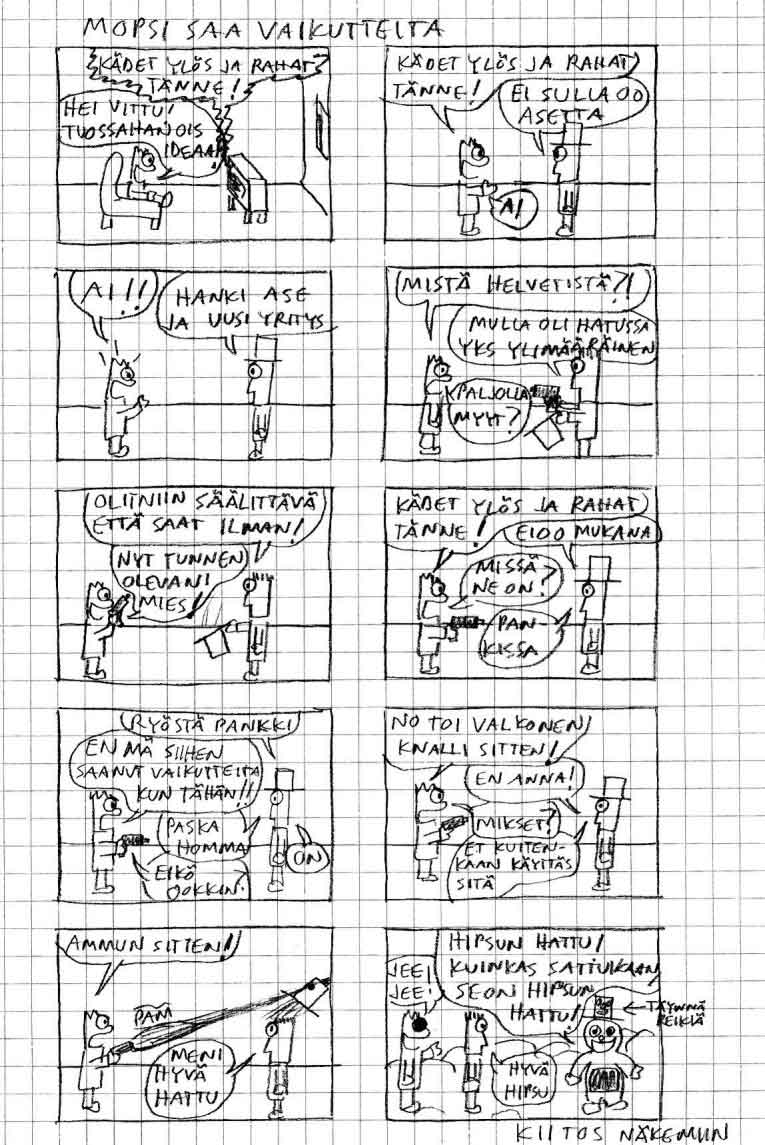 MOPSI SAA VAIKUTTEITA
KÄDET YLÖS JA RAHAT
TÄNNE!
HEI VITTU!
TUOSSAHAN OIS
IDEAA!
KÄDET YLÖS JA RAHAT
TÄNNE!
EI SULLA OO
ASETTA
AI
AI!!
HANKI ASE
JA UUSI YRITYS
MISTÄ HELVETISTÄ?!
MULLA OLI HATUSSA
YKS YLIMÄÄRÄINEN
PALJOLLA
MYYT?
OLIT NIIN SÄÄLITTÄVÄ
ETTÄ SAAT ILMAN!
NYT TUNNEN
OLEVANI
MIES!
KÄDET YLÖS JA RAHAT
TÄNNE!
EI OO MUKANA
MISSÄ
NE ON?
PAN-
KISSA
RYÖSTÄ PANKKI
EN MÄ SIIHEN
SAANUT VAIKUTTEITA
KUN TÄHÄN!!
PASKA
HOMMA
ON
EIKÖ
OOKKIN?
NO TOI VALKONEN
KNALLI SITTEN!
EN ANNA!
MIKSET?
ET KUITEN-
KAAN KÄYTTÄS
SITÄ
AMMUN SITTEN!!
PAM
MENI
HYVÄ
HATTU
HIPSUN HATTU!
KUINKAS SATTUIKAAN
SE ON HIPSUN
HATTU!
JEE!
JEE!
TÄYNNÄ
REIKIÄ
HYVÄ
HIPSU
KIITOS NÄKEMIIN